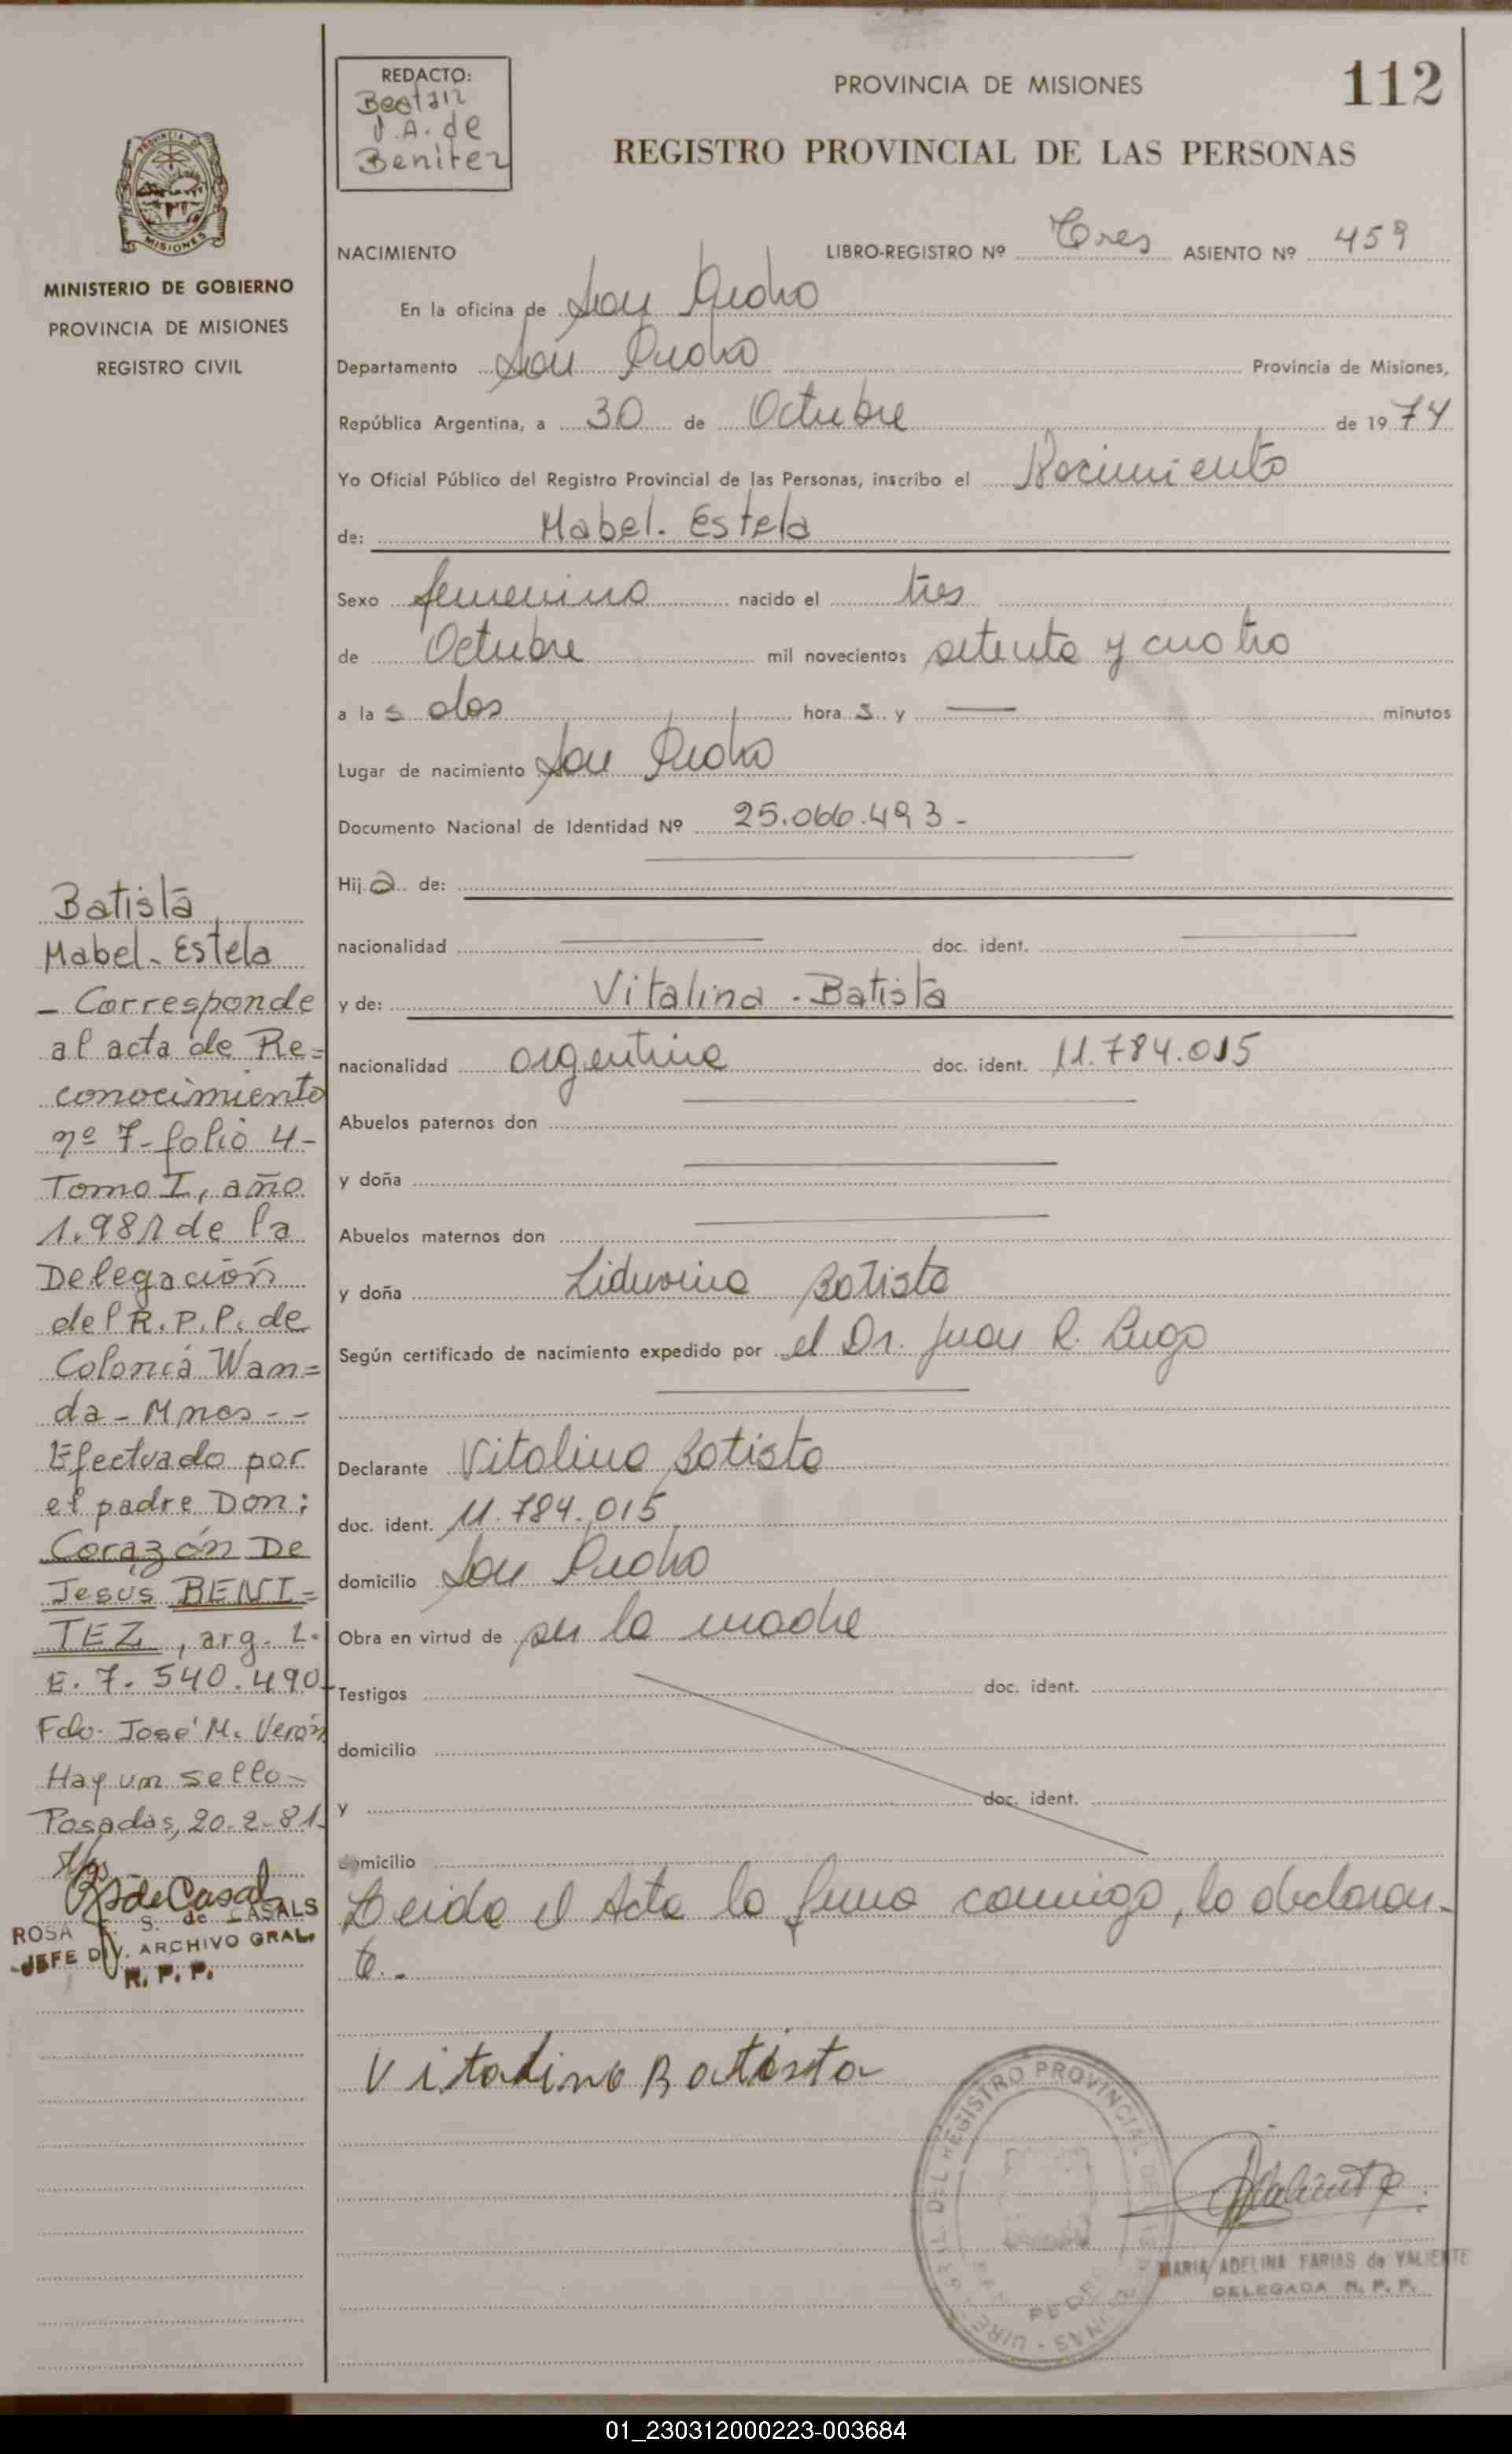 REDACTO:
Beatriz
J.A. de
Benitez
PROVINCIA DE MISIONES
112
REGISTRO PROVINCIAL DE LAS PERSONAS
MISIONES
MINISTERIO DE GOBIERNO
PROVINCIA DE MISIONES
REGISTRO CIVIL
NACIMIENTO LIBRO-REGISTRO Nº Tres ASIENTO Nº 459
En la oficina de San Pedro
Departamento San Pedro Provincia de Misiones,
República Argentina, a 30 de Octubre de 1974
Yo Oficial Público del Registro Provincial de las Personas, inscribo el Nacimiento
de: Mabel. Estela
Sexo femenino nacido el tres
de Octubre mil novecientos setenta y cuatro
a las dos hora s y — minutos
Lugar de nacimiento San Pedro
Documento Nacional de Identidad Nº 25.066.493-
Hija de:
nacionalidad doc. ident.
y de: Vitalina - Batista
nacionalidad argentina doc. ident. 11.784.015
Abuelos paternos don
y doña
Abuelos maternos don
y doña Liduvina Batista
Según certificado de nacimiento expedido por el Dr. Juan R. Lugo
Declarante Vitalina Batista
doc. ident. 11.784.015
domicilio San Pedro
Obra en virtud de ser la madre
Testigos doc. ident.
domicilio
y doc. ident.
domicilio
Leida el Acta la firma conmigo, la declaran-
te.-
Vitalina Batista
Batista
Mabel- Estela
- Corresponde
al acta de Re=
conocimiento
nº 7- folio 4-
Tomo I, año
1.981 de la
Delegación
del R.P.P. de
Colonia Wan=
da - Mnes - -
Efectuado por
el padre Don:
Corazón De
Jesús BENI=
TEZ, arg. L.
E. 7. 540.490-
Fdo. José M. Verón
Hay un sello-
Posadas, 20-2-81-
ROSA S. de CASALS
JEFE DIV. ARCHIVO GRAL.
R. P. P.
DEL REGISTRO PROVINCIAL DE
SAN PEDRO
MARIA ADELINA FARIAS de VALIENTE
DELEGADA R. P. P.
01_230312000223-003684